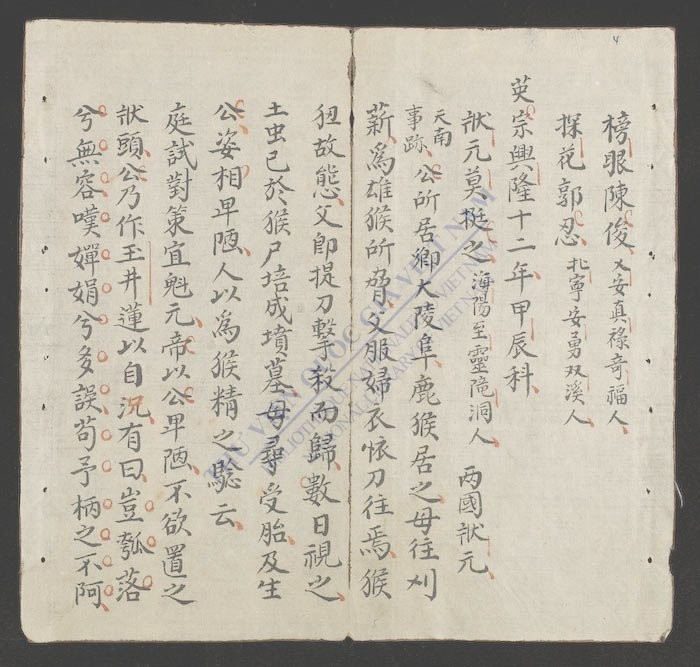 榜眼陳俊乂安真祿奇福人
探花郭忍北寧安勇双溪人
英宗興隆十二年甲辰科
狀元莫挺之海陽至靈隴洞人 两國狀元
天南事跡公所居鄉大陵阜鹿猴居之母往刈
薪爲雄猴所脅父服婦衣恠刀往焉猴
狃故態父卽提刀擊殺而歸數日視之
土虫已於猴尸培成墳墓母尋受胎及生
公姿相卑陋人以爲猴精之驗云
庭試對策宜魁元帝以公卑陋不欲置之
狀頭公乃作玉井蓮以自況有曰豈瓠落
兮無容嘆嬋娟兮多誤苟予柄之不阿
THƯ VIỆN QUỐC GIA VIỆT NAM
BIBLIOTHEQUE NATIONALE DU VIETNAM
NATIONAL LIBRARY OF VIETNAM